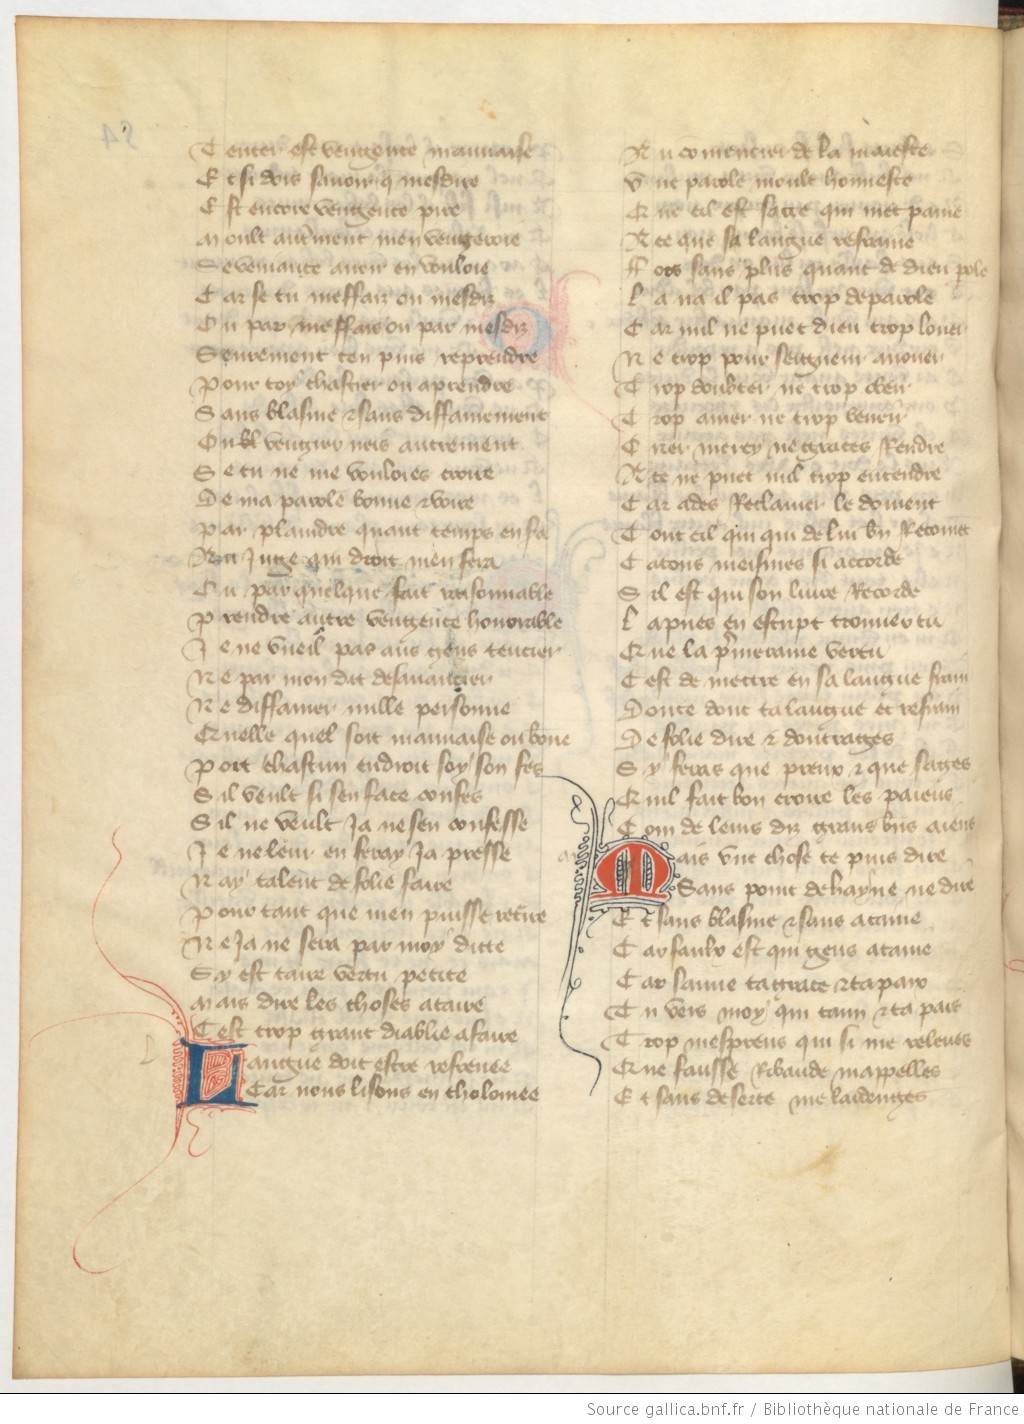 Tencier est vengence mauuaise
Et si dois sauoir q mesdire
Est encore vengence pire
Moult autrement men vengeroie
Se veniance auoir en vouloie
Car se tu meffaiz ou mesdiz
Ou par meffais ou par mesdiz
Seurement ten puis reprendre
Pour toy chastier ou aprendre
Sans blasme & sans diffamement
Ou vengier neis autrement
Se tu ne me vouloies croire
De ma parole bonne & voire
Par plaindre quant temps en sa
Au Juge qui droit men fera
Ou par quelque fait raisonnable
Prendre autre vengence honorable
Je ne vueil pas aus gens tencier
Ne par mon dit desauancier
Ne diffamer nulle personne
Quelle quel soit mauuaise ou bone
Port chascun endroit soy son fes
Sil veult si sen face confes
Sil ne veult Ja ne sen confesse
Je ne leur en feray Ja presse
Nay talent de folie faire
Pour tant que men puisse retrire
Ne Ja ne sera par moy ditte
Sy est taire vertu petite
Mais dire les choses ataire
Cest trop grant diablie a faire
Langue doit estre refrenee
Car nous lisons en tholomee
Au comencier de la maieste
Vne parole moult honneste
Que cil est saige qui met paine
A ce que sa langue refraine
Fors sans plus quant de dieu pole
La na il pas trop de parole
Car nul ne puet dieu trop louer
Ne trop pour seigneur auouer
Trop doubter ne trop obeir
Trop amer ne trop beneir
Crier mercy ne graces Rendre
A ce ne puet nul trop entendre
Car ades Reclamer le doiuent
Tout cil qui de lui bn Recoiuet
Catons meismes si accorde
Sil est qui son liure Recorde
La pues en escript trouuer tu
Que la pmeraine vertu
Cest de mettre en sa langue frain
Donte dont ta langue et refrain
De folie dire & doutrages
Sy feras que preux & que sages
Quil fait bon croire les paiens
Com de leurs diz grans bns aiens
Mais vne chose te puis dire
Sans point de hayne ne dire
Et sans blasme & sans ataine
Car faulx est qui gens ataine
Car sauue ta grace & ta paix
Tu vers moy qui taim & ta pais
Trop mesprens qui si me releues
Que fausse Ribaude mappelles
Et sans deserte me laidenges